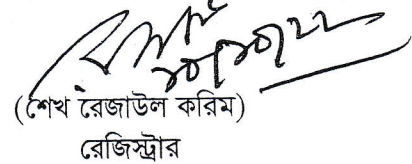 (শেখ রেজাউল করিম)
রেজিস্ট্রার